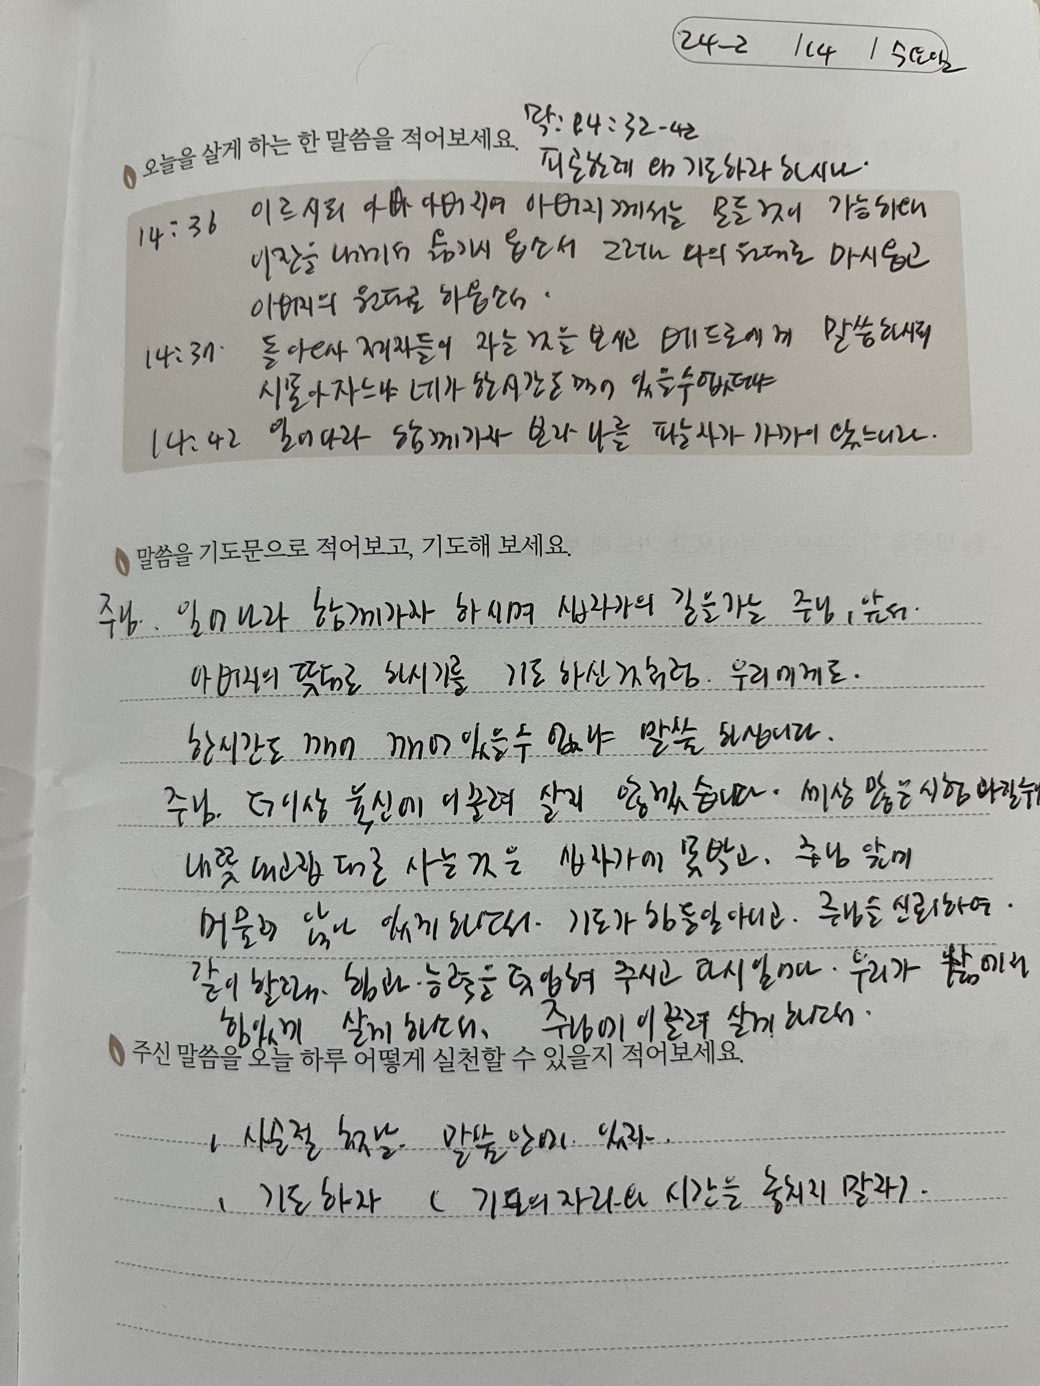 24-2 / 14 / 수요일
막: 14:32-42
오늘을 살게 하는 한 말씀을 적어보세요.
피곤한데 왜 기도하라 하시나.
14:36 이르시되 아빠 아버지여 아버지께서는 모든 것이 가능하오니
이 잔을 내게서 옮기시 옵소서 그러나 나의 원대로 마시옵고
아버지의 원대로 하옵소서.
14:37 돌아오사 제자들이 자는 것을 보시고 베드로에게 말씀하시되
시몬아 자느냐 네가 한시간도 깨어 있을수 없더냐
14:42 일어나라 함께가자 보라 나를 파는 자가 가까이 왔느니라.
말씀을 기도문으로 적어보고, 기도해 보세요.
주님. 일어나라 함께가자 하시며 십자가의 길을가는 주님, 앞서.
아버지의 뜻대로 하시기를 기도 하신 것처럼. 우리에게도.
한시간도 깨어 깨어 있을수 없냐 말씀 하십니다.
주님. 더이상 육신에 이끌려 살지 않겠습니다. 세상 많은 시험 당할때
내뜻 내고집 대로 사는 것은 십자가에 못박고. 주님 앞에
머물러 앉아 있게 하소서. 기도가 힘든일 아니고. 주님을 신뢰하여.
같이 할때. 힘과 능력을 덧입혀 주시고 다시일어나. 우리가 삶에서
힘있게 살게 하소서. 주님에 이끌려 살게 하소서.
주신 말씀을 오늘 하루 어떻게 실천할 수 있을지 적어보세요.
, 사순절 첫날. 말씀 안에 있자.
, 기도 하자 ( 기도의 자리와 시간을 놓치지 말자).